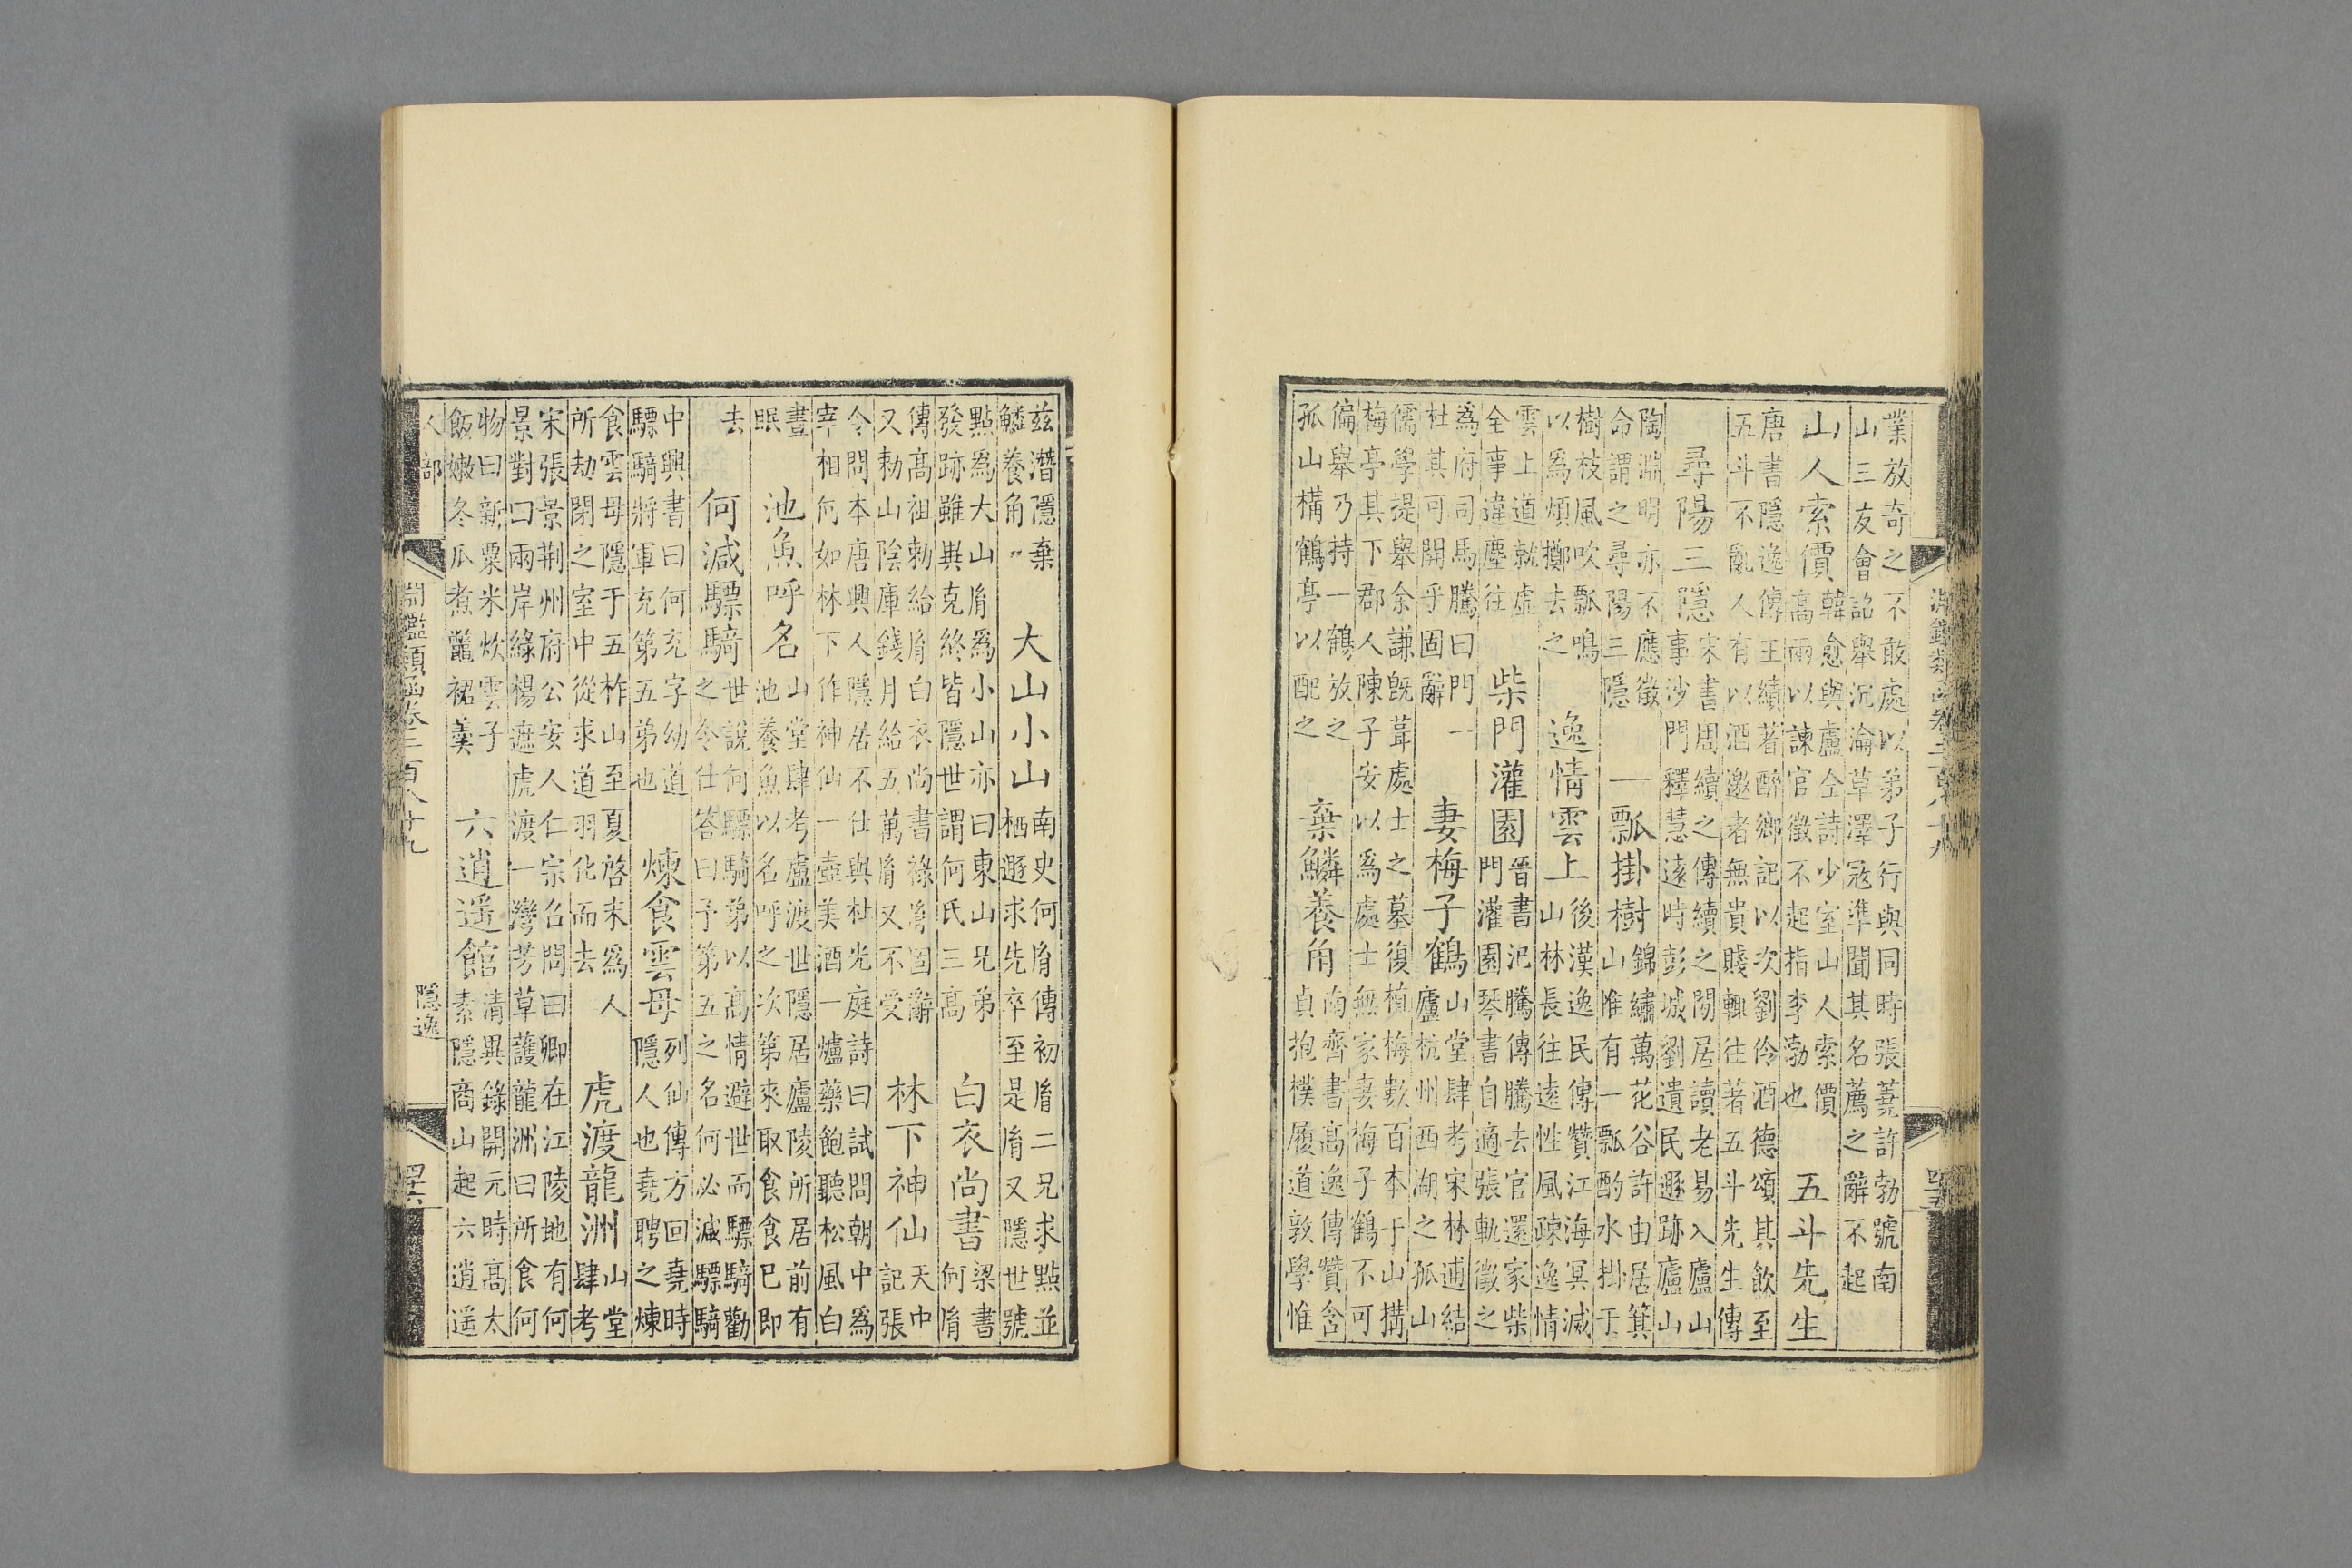 業放奇之不敢處以弟子行與同時張蕘許勃號南
山三友會詔舉沉淪草澤冦準聞其名薦之辭不起
山人索價
韓愈與盧仝詩少室山人索價
高兩以諫官徵不起指李渤也
五斗先生
唐書隱逸傳王績著醉鄉記以次劉伶酒德頌其飲至
五斗不亂人有以酒邀者無貴賤輒往著五斗先生傳
尋陽三隱
宋書周續之傳續之閒居讀老易入廬山
事沙門釋慧遠時彭城劉遺民遯跡廬山
陶淵明亦不應徵
命謂之尋陽三隱
一瓢掛樹
錦繡萬花谷許由居箕
山惟有一瓢酌水掛于
樹枝風吹瓢鳴
以為煩擲去之
逸情雲上
後漢逸民傳贊江海冥滅
山林長往遠性風疎逸情
雲上道就虛
全事違塵往
柴門灌園
晉書汜騰傳騰去官還家柴
門灌園琴書自適張軌徵之
為府司馬騰曰門一
杜其可開乎固辭
妻梅子鶴
山堂肆考宋林逋結
廬杭州西湖之孤山
儒學提舉余謙旣葺處士之墓復植梅數百本于山搆
梅亭其下郡人陳子安以為處士無家妻梅子鶴不可
偏舉乃持一鶴放之
孤山構鶴亭以配之
棄鱗養角
南齊書高逸傳贊含
貞抱樸履道敦學惟
淵鑑類函卷二百八十九
四十五
兹潛隱棄
鱗養角〃
大山小山
南史何胤傳初胤二兄求點並
栖遯求先卒至是胤又隱世號
點為大山胤為小山亦曰東山兄弟
發跡雖異克終皆隱世謂何氏三高
白衣尚書
梁書
何胤
傳高祖勅給胤白衣尚書祿胤固辭
又勅山陰庫錢月給五萬胤又不受
林下神仙
天中
記張
令問本唐興人隱居不仕與杜光庭詩曰試問朝中為
宰相何如林下作神仙一壺美酒一爐藥飽聽松風白
晝
眠
池魚呼名
山堂肆考盧渡世隱居廬陵所居前有
池養魚以名呼之次第來取食食已即
去
何減驃騎
世說何驃騎弟以高情避世而驃騎勸
之令仕答曰予第五之名何必減驃騎
中興書曰何充字幼道
驃騎將軍充第五弟也
煉食雲母
列仙傳方回堯時
隱人也堯聘之煉
食雲母隱于五柞山至夏啓末為人
所劫閉之室中從求道羽化而去
虎渡龍洲
山堂
肆考
宋張景荆州府公安人仁宗召問曰卿在江陵地有何
景對曰兩岸綠楊遮虎渡一灣芳草護龍洲曰所食何
物曰新粟米炊雲子
飯嫩冬瓜煮鼈裙羹
六逍遥館
清異錄開元時高太
素隱商山起六逍遥
人部
淵鑑類函卷二百八十九
隱逸
四十六